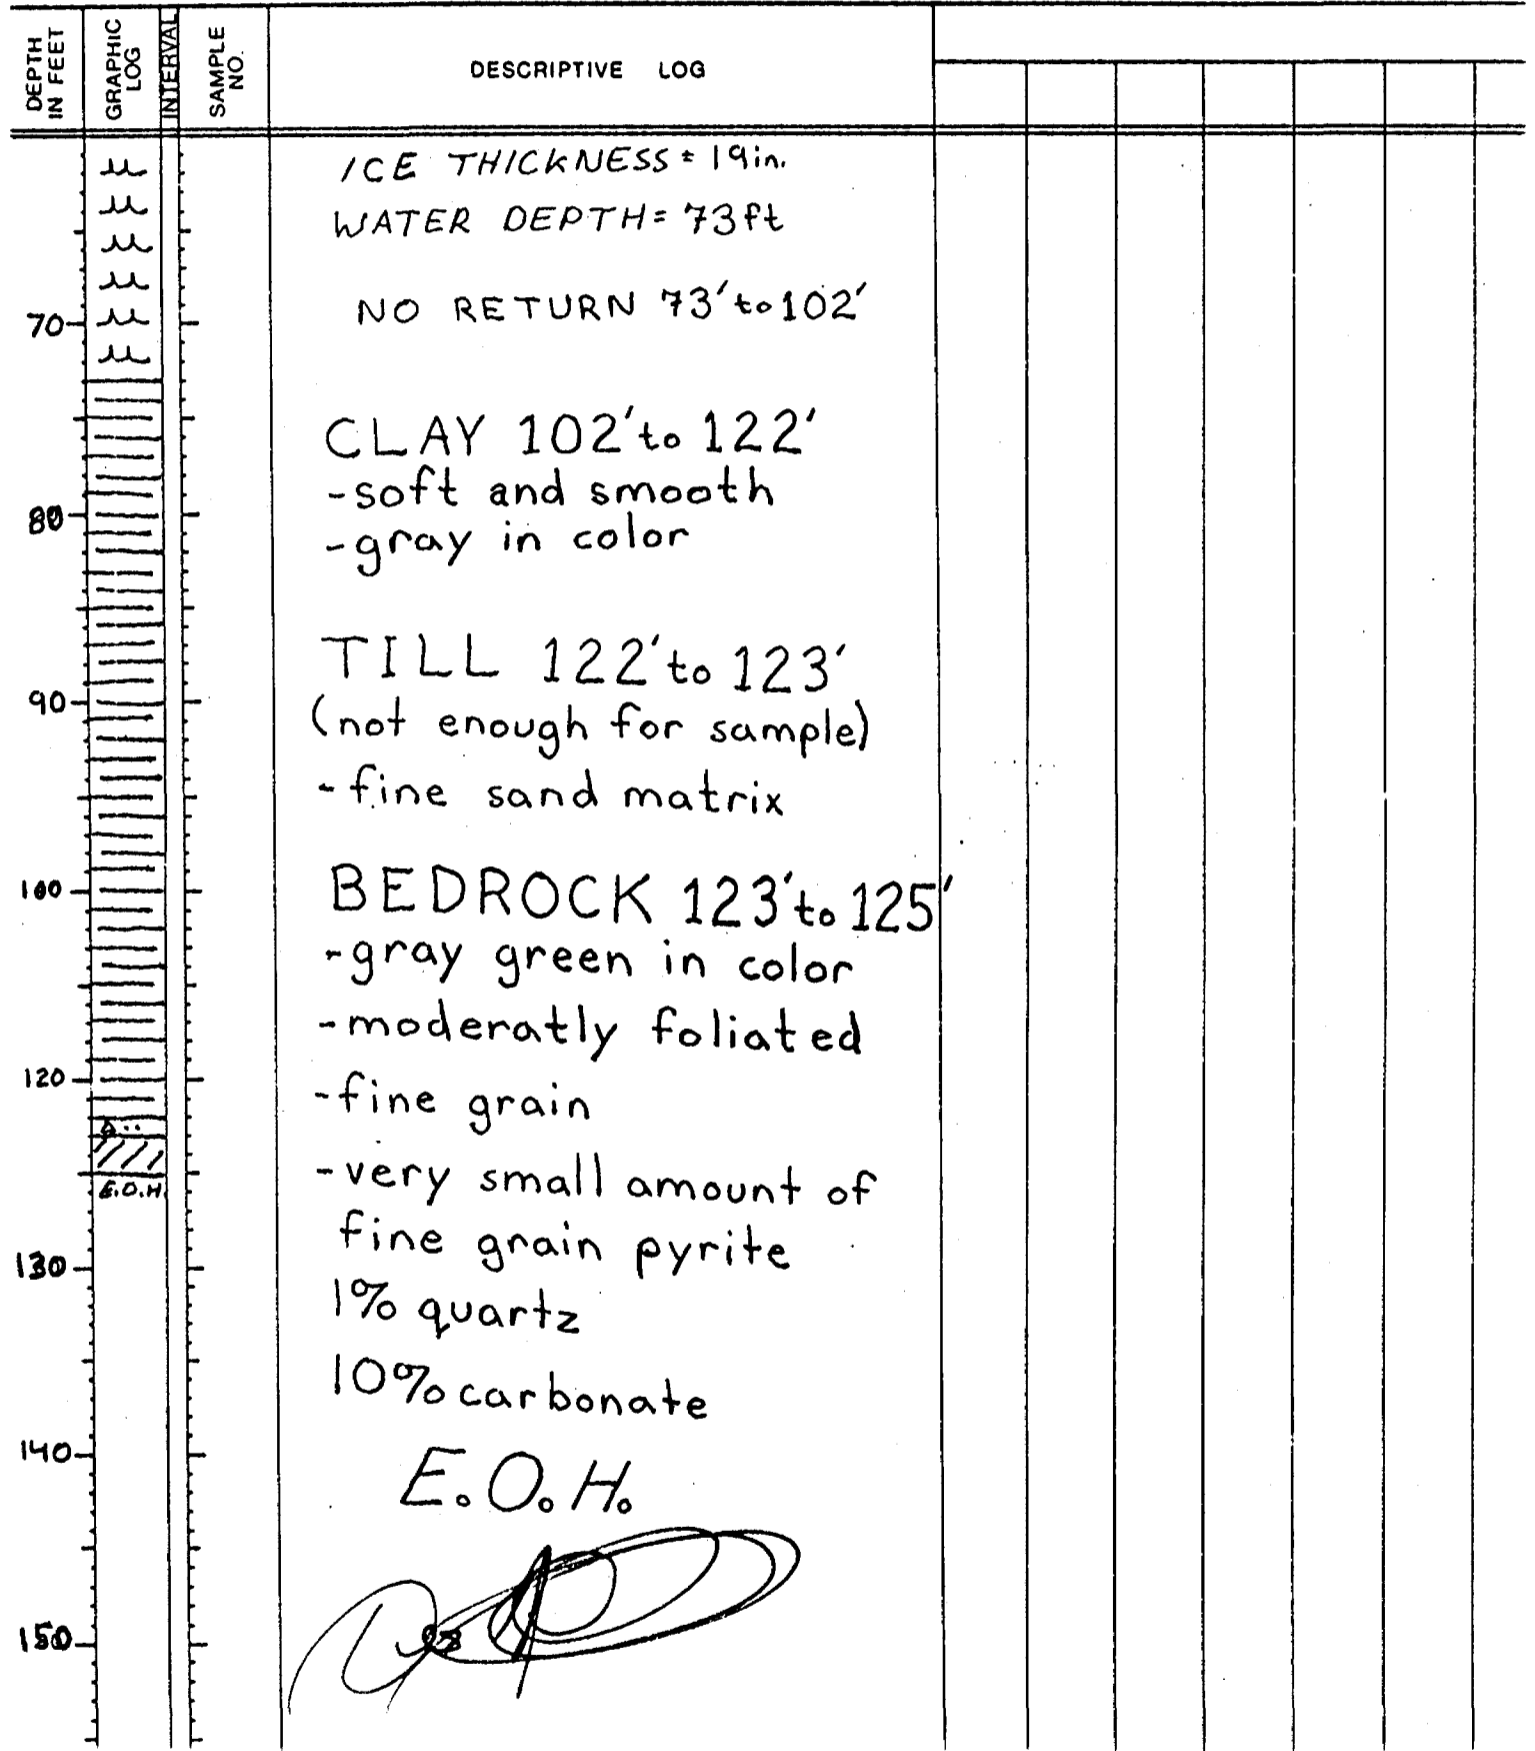 DEPTH IN FEET
GRAPHIC LOG
INTERVAL
SAMPLE NO.
DESCRIPTIVE LOG
ICE THICKNESS = 19in.
WATER DEPTH = 73ft
NO RETURN 73' to 102'
70
CLAY 102' to 122'
-soft and smooth
80
-gray in color
TILL 122' to 123'
90
(not enough for sample)
-fine sand matrix
100
BEDROCK 123' to 125'
-gray green in color
-moderatly foliated
120
-fine grain
-very small amount of
E.O.H.
fine grain pyrite
130
1% quartz
10% carbonate
140
E.O.H.
150